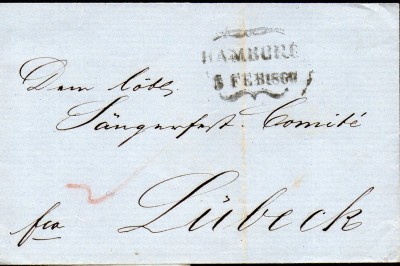 HAMBURG
5 FEB 1860
Dem löbl.
Sängerfest-Comité
fco Lübeck